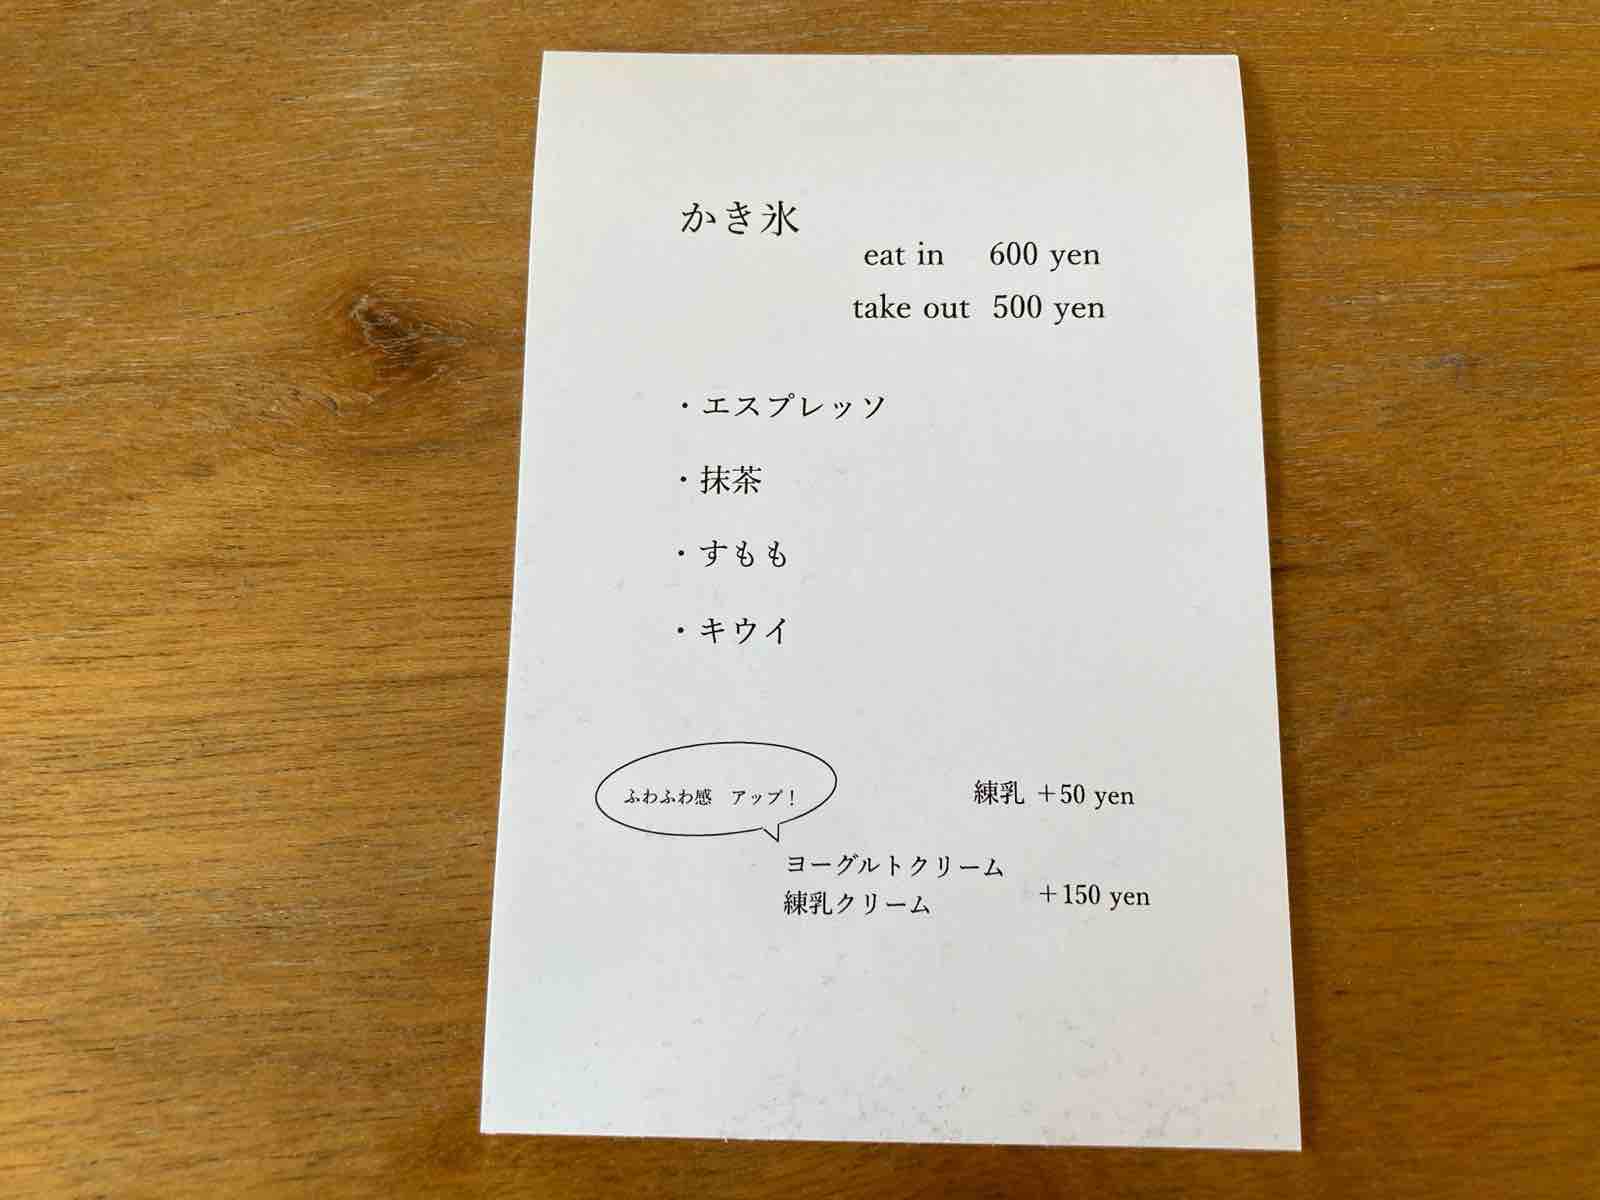 かき氷
eat in 600 yen
take out 500 yen
・エスプレッソ
・抹茶
・すもも
・キウイ
ふわふわ感 アップ！
練乳 +50 yen
ヨーグルトクリーム
練乳クリーム
+150 yen